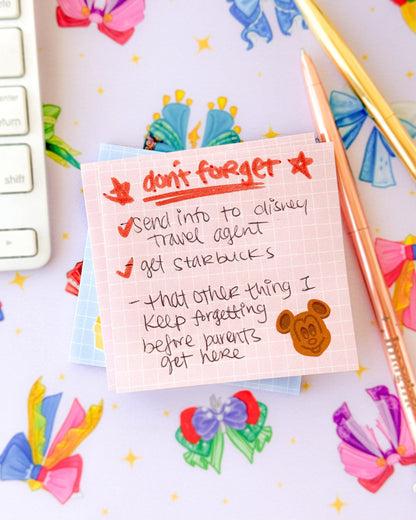 enter
return
shift
don't forget
send info to disney
travel agent
get starbucks
- that other thing I
keep forgetting
before parents
get here